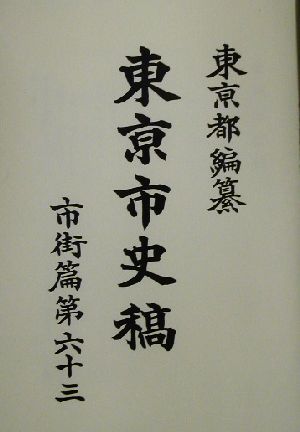 東京都編纂
東京市史稿
市街篇第六十三